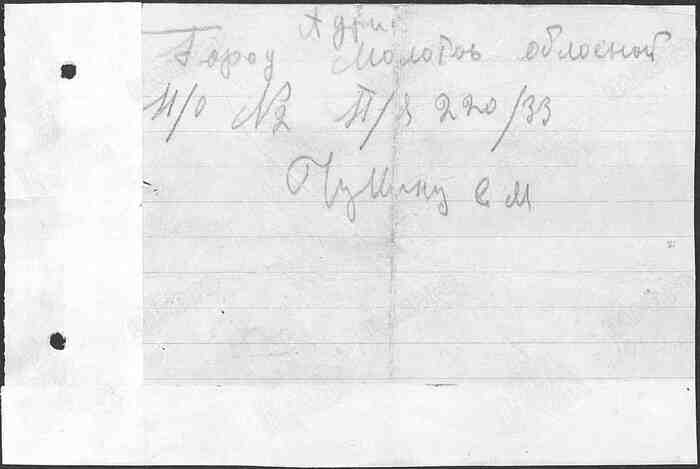 Адрис
Город Молотов обласной
П/О №2 П/Я 220/33
Пункину С М